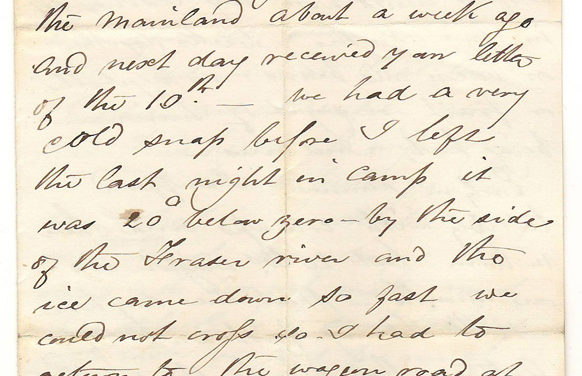 the mainland about a week ago
and next day received your letter
of the 10th — we had a very
cold snap before I left
the last night in camp it
was 20° below zero – by the side
of the Fraser river and the
ice came down so fast we
could not cross so I had to
return to the waggon road at